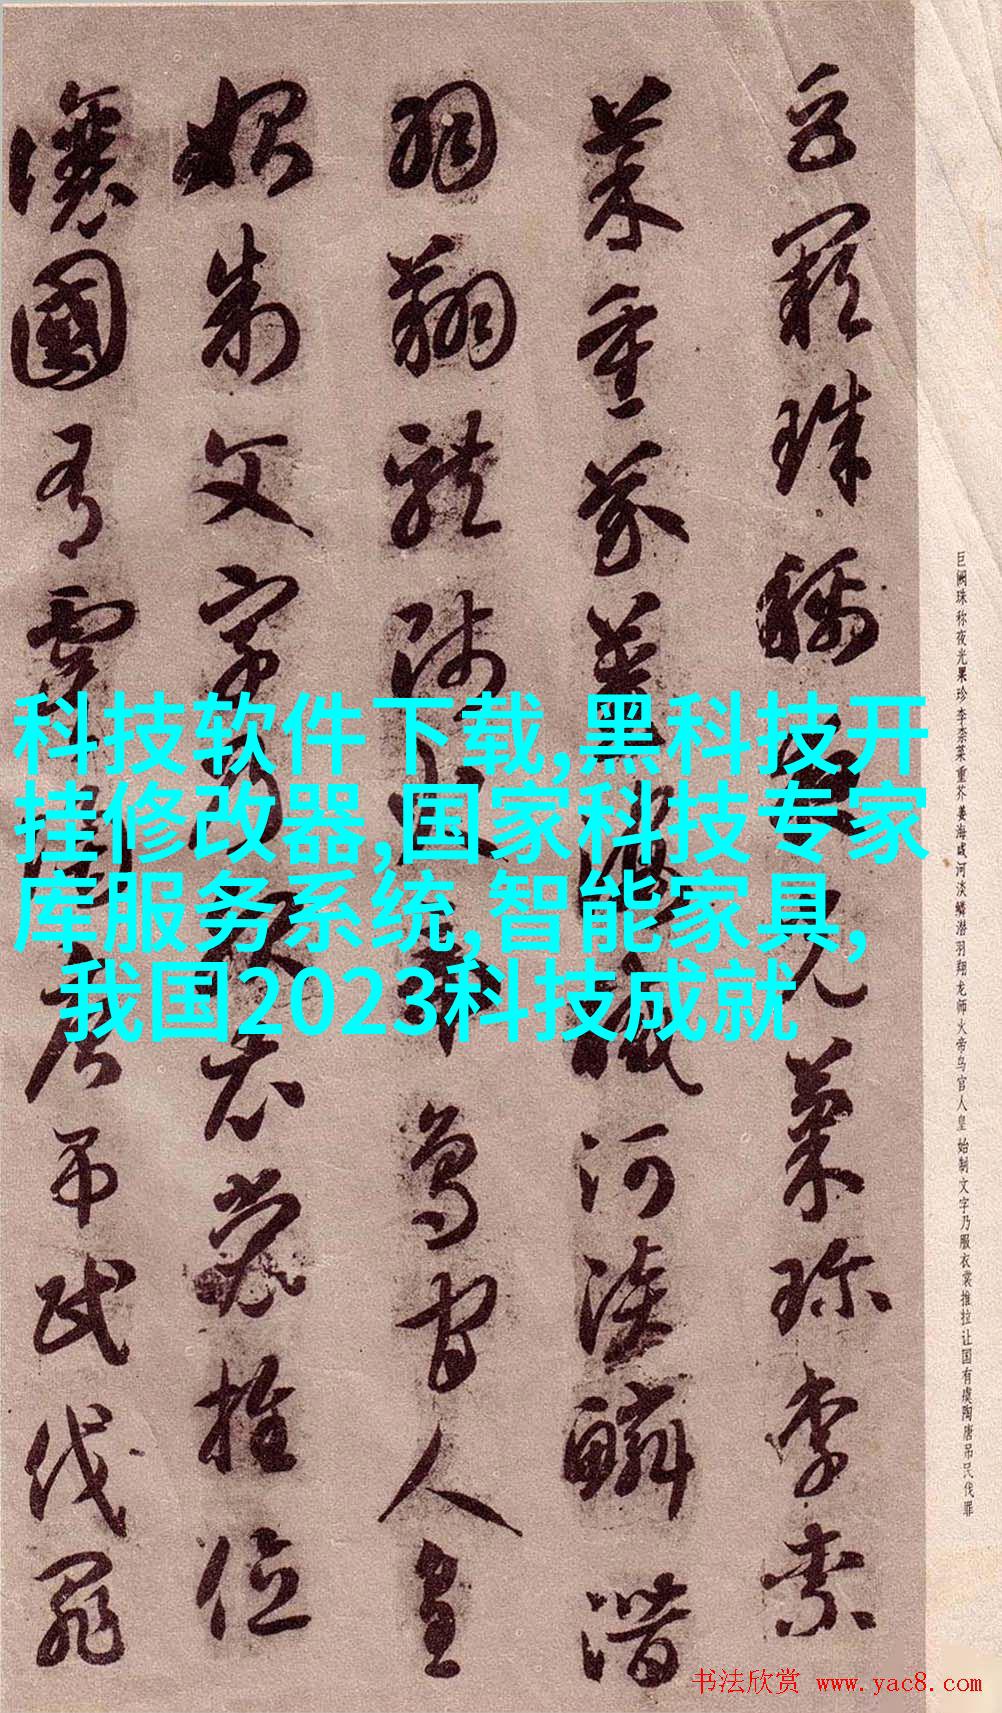 科技软件下载,黑科技开
挂修改器,国家科技专家
库服务系统,智能家具,
我国2023科技成就
巨闕珠稱夜光菓珍李柰
菜重芥薑海醎河淡鱗潛
羽翔龍師火帝鳥官人皇
始制文字乃服衣裳推位
讓國有虞陶唐吊民伐罪
巨阙珠称夜光果珍李柰菜重芥姜海咸河淡鳞潜羽翔龙师火帝鸟官人皇始制文字乃服衣裳推拉让国有虞陶唐吊民伐罪
书法欣赏 www.yac8.com